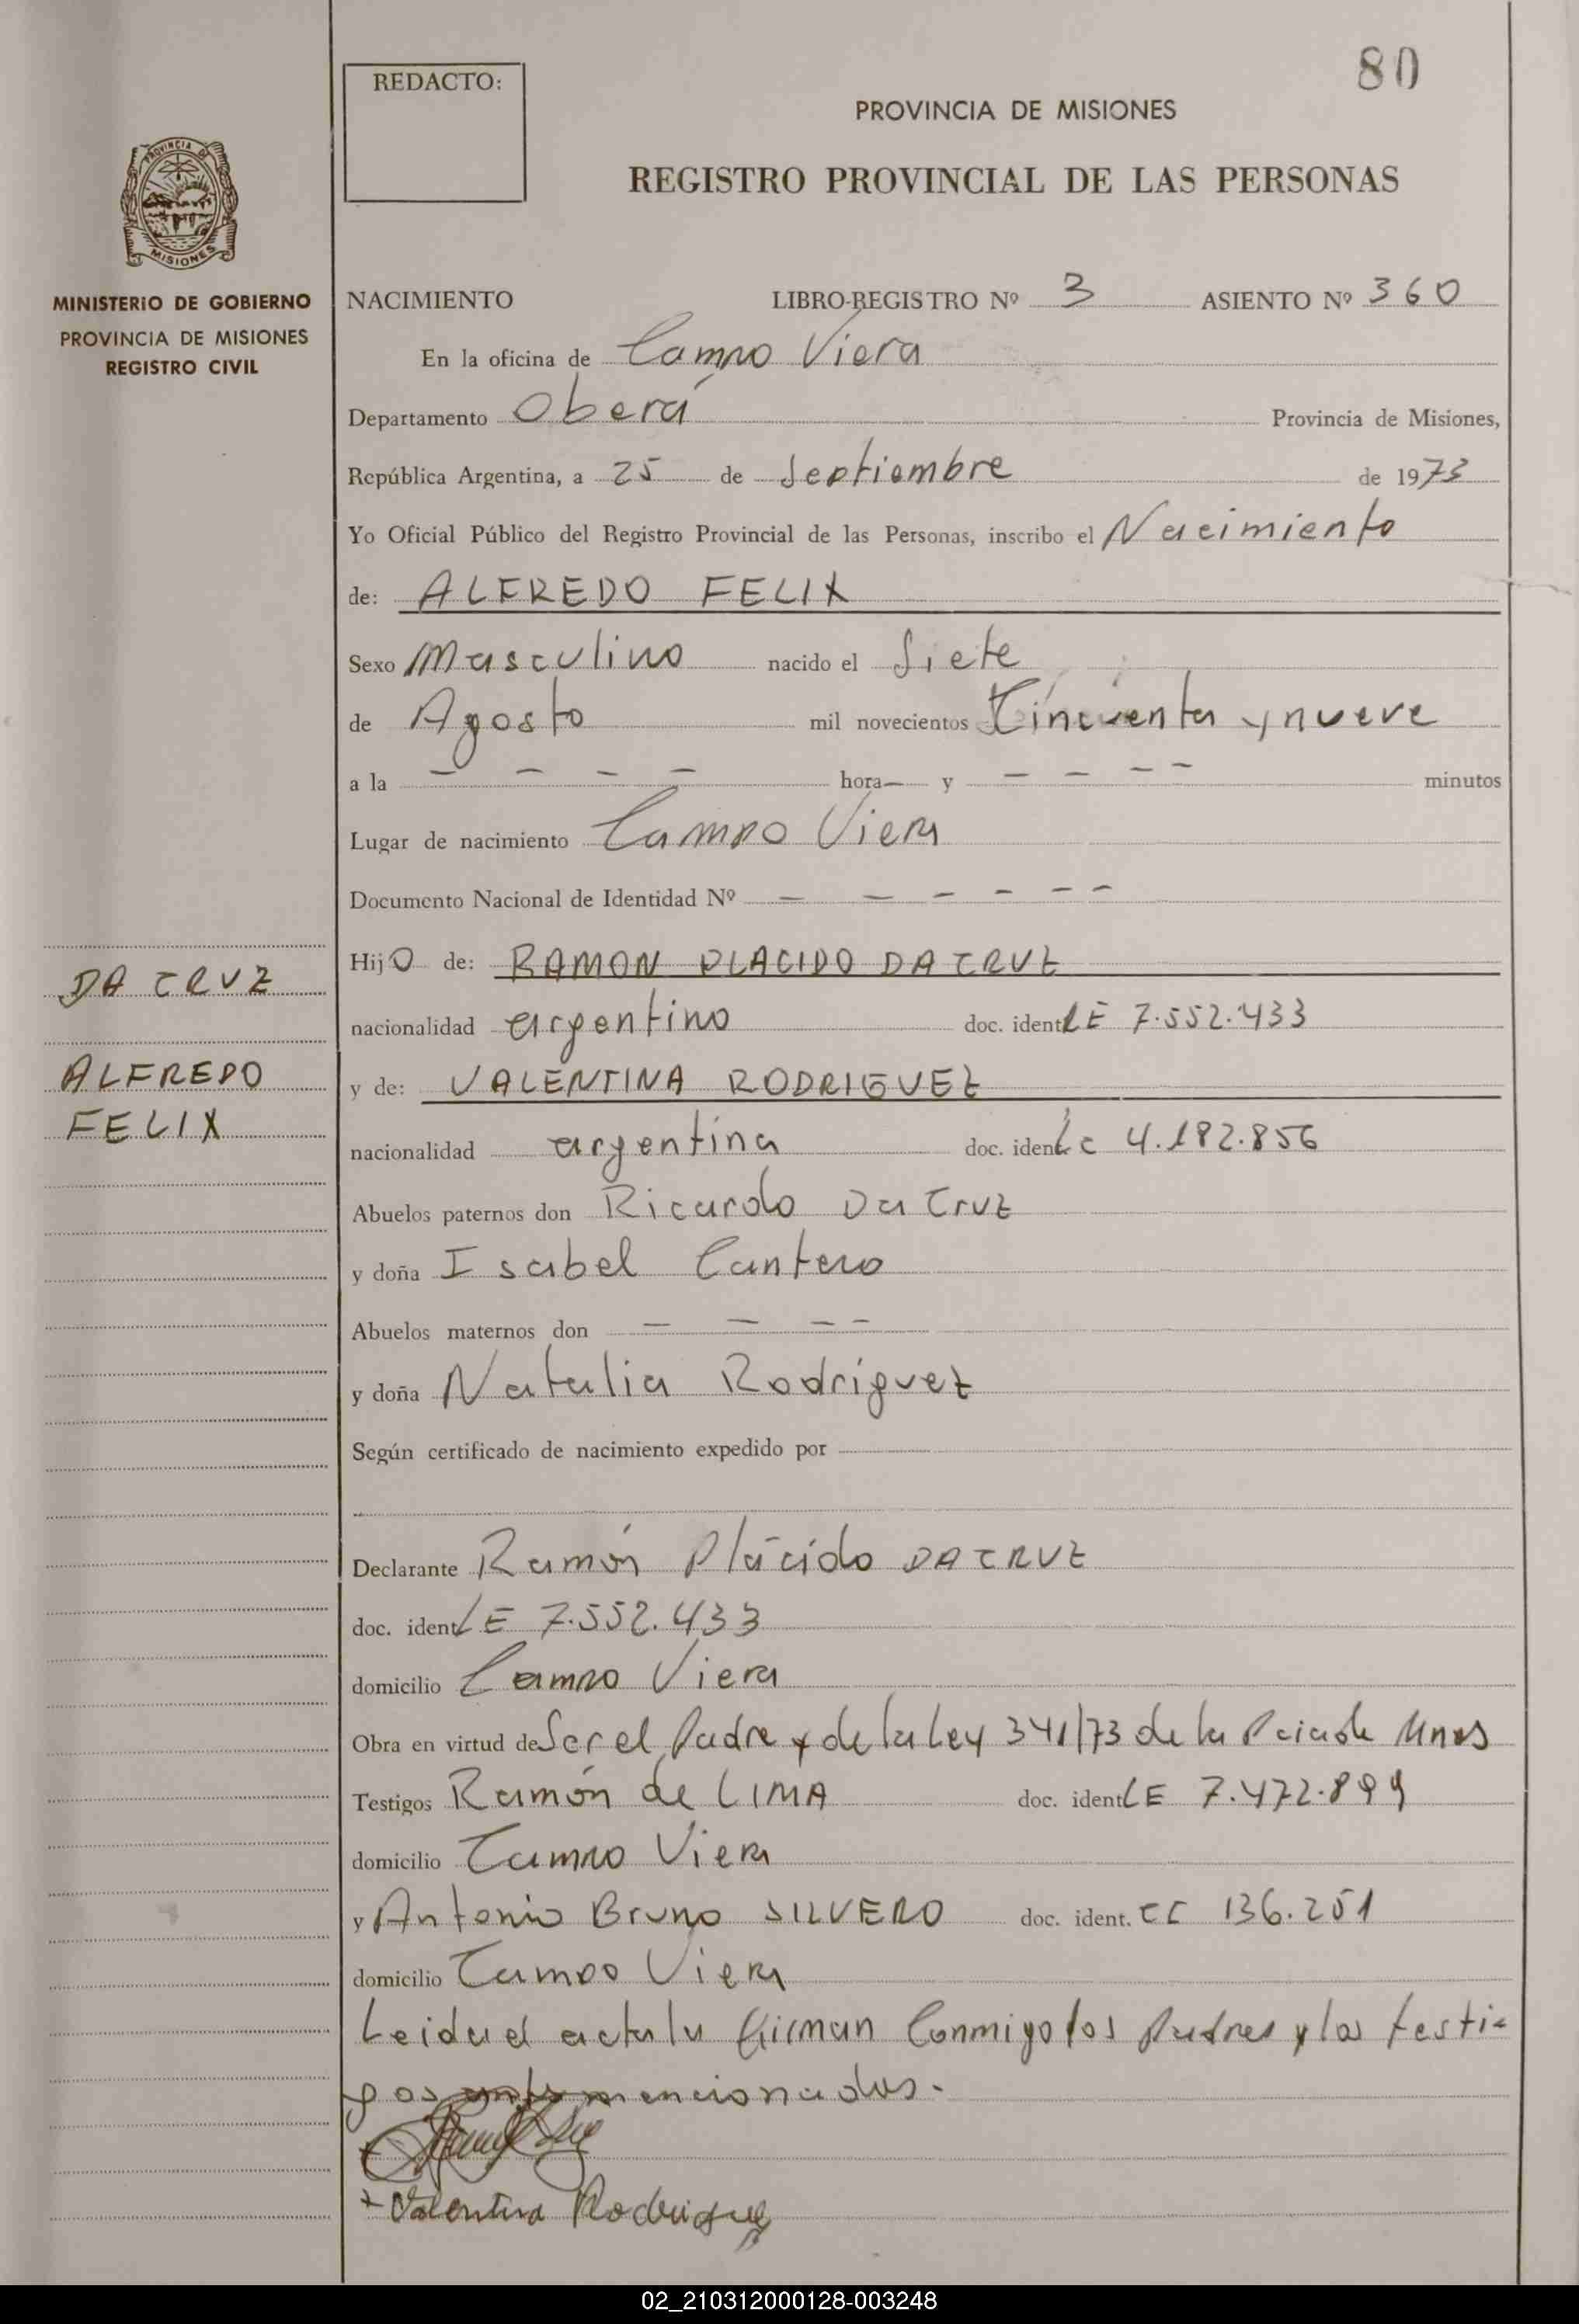 80
REDACTO:
PROVINCIA DE MISIONES
REGISTRO PROVINCIAL DE LAS PERSONAS
PROVINCIA DE
MISIONES
MINISTERIO DE GOBIERNO
PROVINCIA DE MISIONES
REGISTRO CIVIL
NACIMIENTO LIBRO-REGISTRO Nº 3 ASIENTO Nº 360
En la oficina de Campo Viera
Departamento Oberá Provincia de Misiones,
República Argentina, a 25 de Septiembre de 1973
Yo Oficial Público del Registro Provincial de las Personas, inscribo el Nacimiento
de: ALFREDO FELIX
Sexo Masculino nacido el Siete
de Agosto mil novecientos Cincuenta y nueve
a la - - - - hora - y - - - - minutos
Lugar de nacimiento Campo Viera
Documento Nacional de Identidad Nº - - - - - -
DA CRUZ
ALFREDO
FELIX
Hijo de: RAMON PLACIDO DA CRUZ
nacionalidad argentino doc. ident LE 7.552.433
y de: VALENTINA RODRIGUEZ
nacionalidad argentina doc. ident Lc 4.182.856
Abuelos paternos don Ricardo Da Cruz
y doña Isabel Cantero
Abuelos maternos don - - - -
y doña Natalia Rodríguez
Según certificado de nacimiento expedido por
Declarante Ramón Plácido DA CRUZ
doc. ident LE 7.552.433
domicilio Campo Viera
Obra en virtud de Ser el Padre y de la Ley 341/73 de la Pcia de Mnes
Testigos Ramón de LIMA doc. ident LE 7.472.899
domicilio Campo Viera
y Antonio Bruno SILVERO doc. ident. CC 136.251
domicilio Campo Viera
Leida el acta la firman Conmigo los Padres y los testi-
gos mencionados.
+ Valentina Rodriguez
02_210312000128-003248